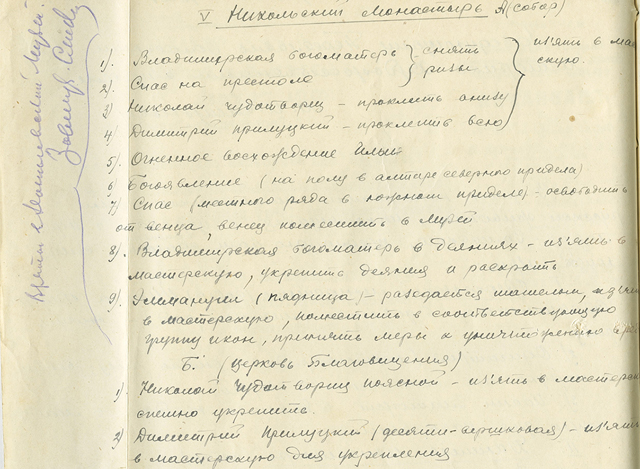 V Никольский монастырь А (собор)
1). Владимирская богоматерь } снять ризы } из'ять в мас-
2). Спас на престоле скую.
3) Николай Чудотворец – проклеить внизу
4) Димитрий Прилуцкий – проклеить всю
5). Огненное восхождение Ильи
6) Богоявление (на полу в алтаре северного придела)
7) Спас (местного ряда в южном приделе) – освободить
от венца, венец поместить в Музей
8). Владимирская богоматерь в деяниях – из'ять в
мастерскую, укрепить деяния и раскрыть
9). Эммануил (пядница) – раз'едается шашелем,
в мастерскую, поместить в соответствующую
группу икон, принять меры к уничтожению
Б. (Церковь Благовещения)
1). Николай Чудотворец поясной – из'ять в мастерск
спешно укрепить.
2) Димитрий Прилуцкий (десяти-вершковая) – из'ять
в мастерскую для укрепления
Музей